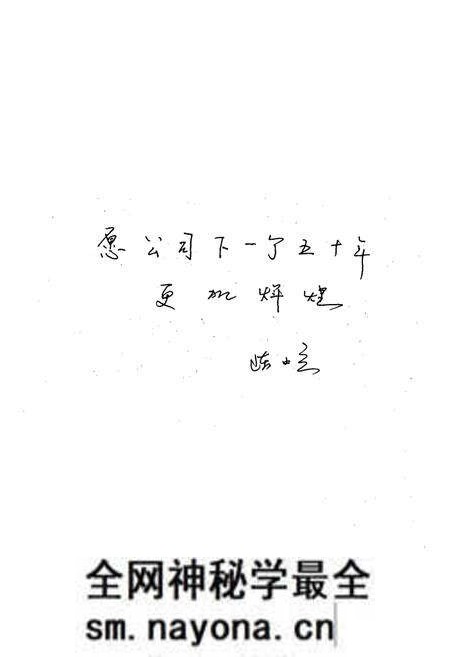 愿公司下一个五十年
更加辉煌
全网神秘学最全
sm.nayona.cn